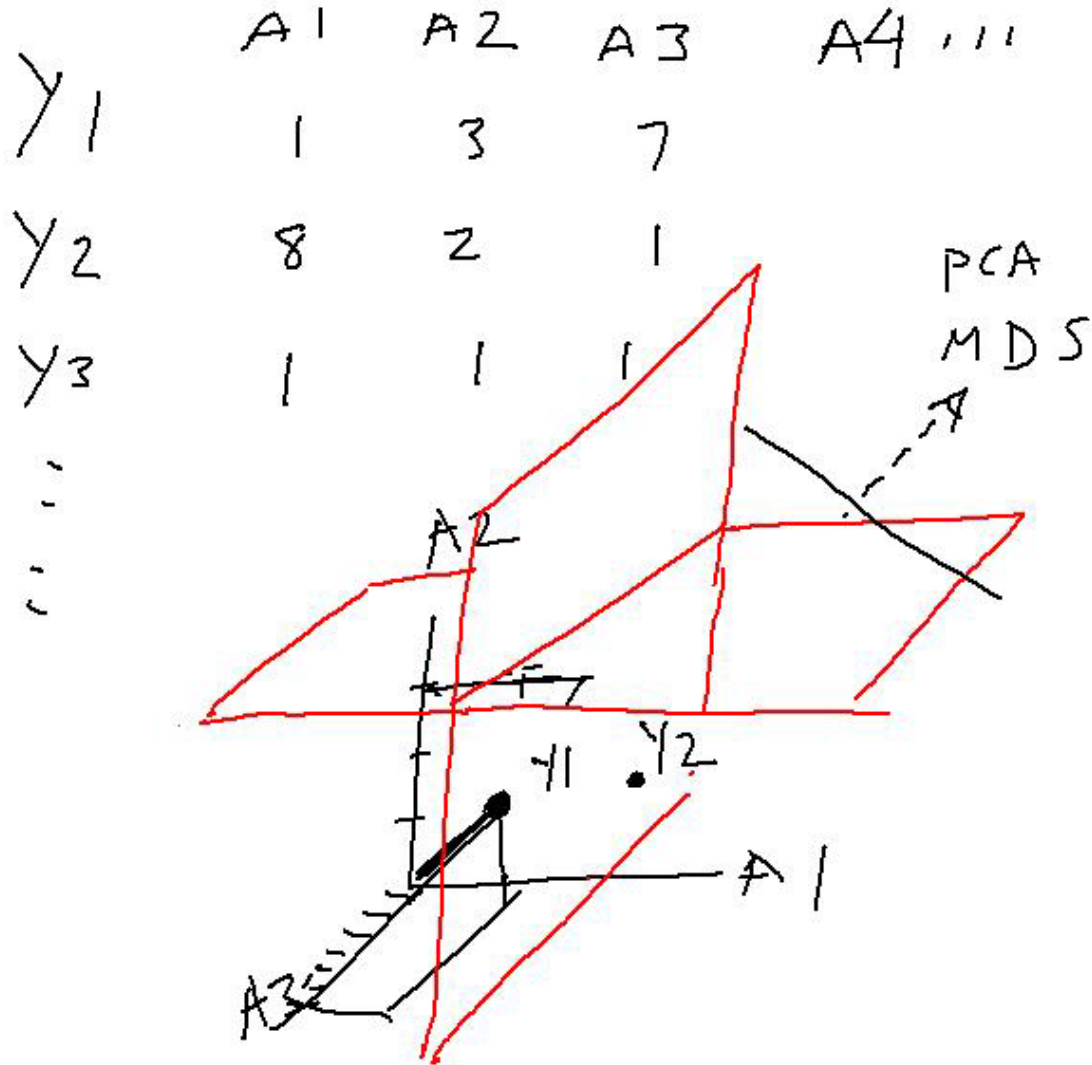 A1 A2 A3 A4 ...
Y1 1 3 7
Y2 8 2 1
Y3 1 1 1
PCA
MDS
A2
Y1 Y2
A1
A3